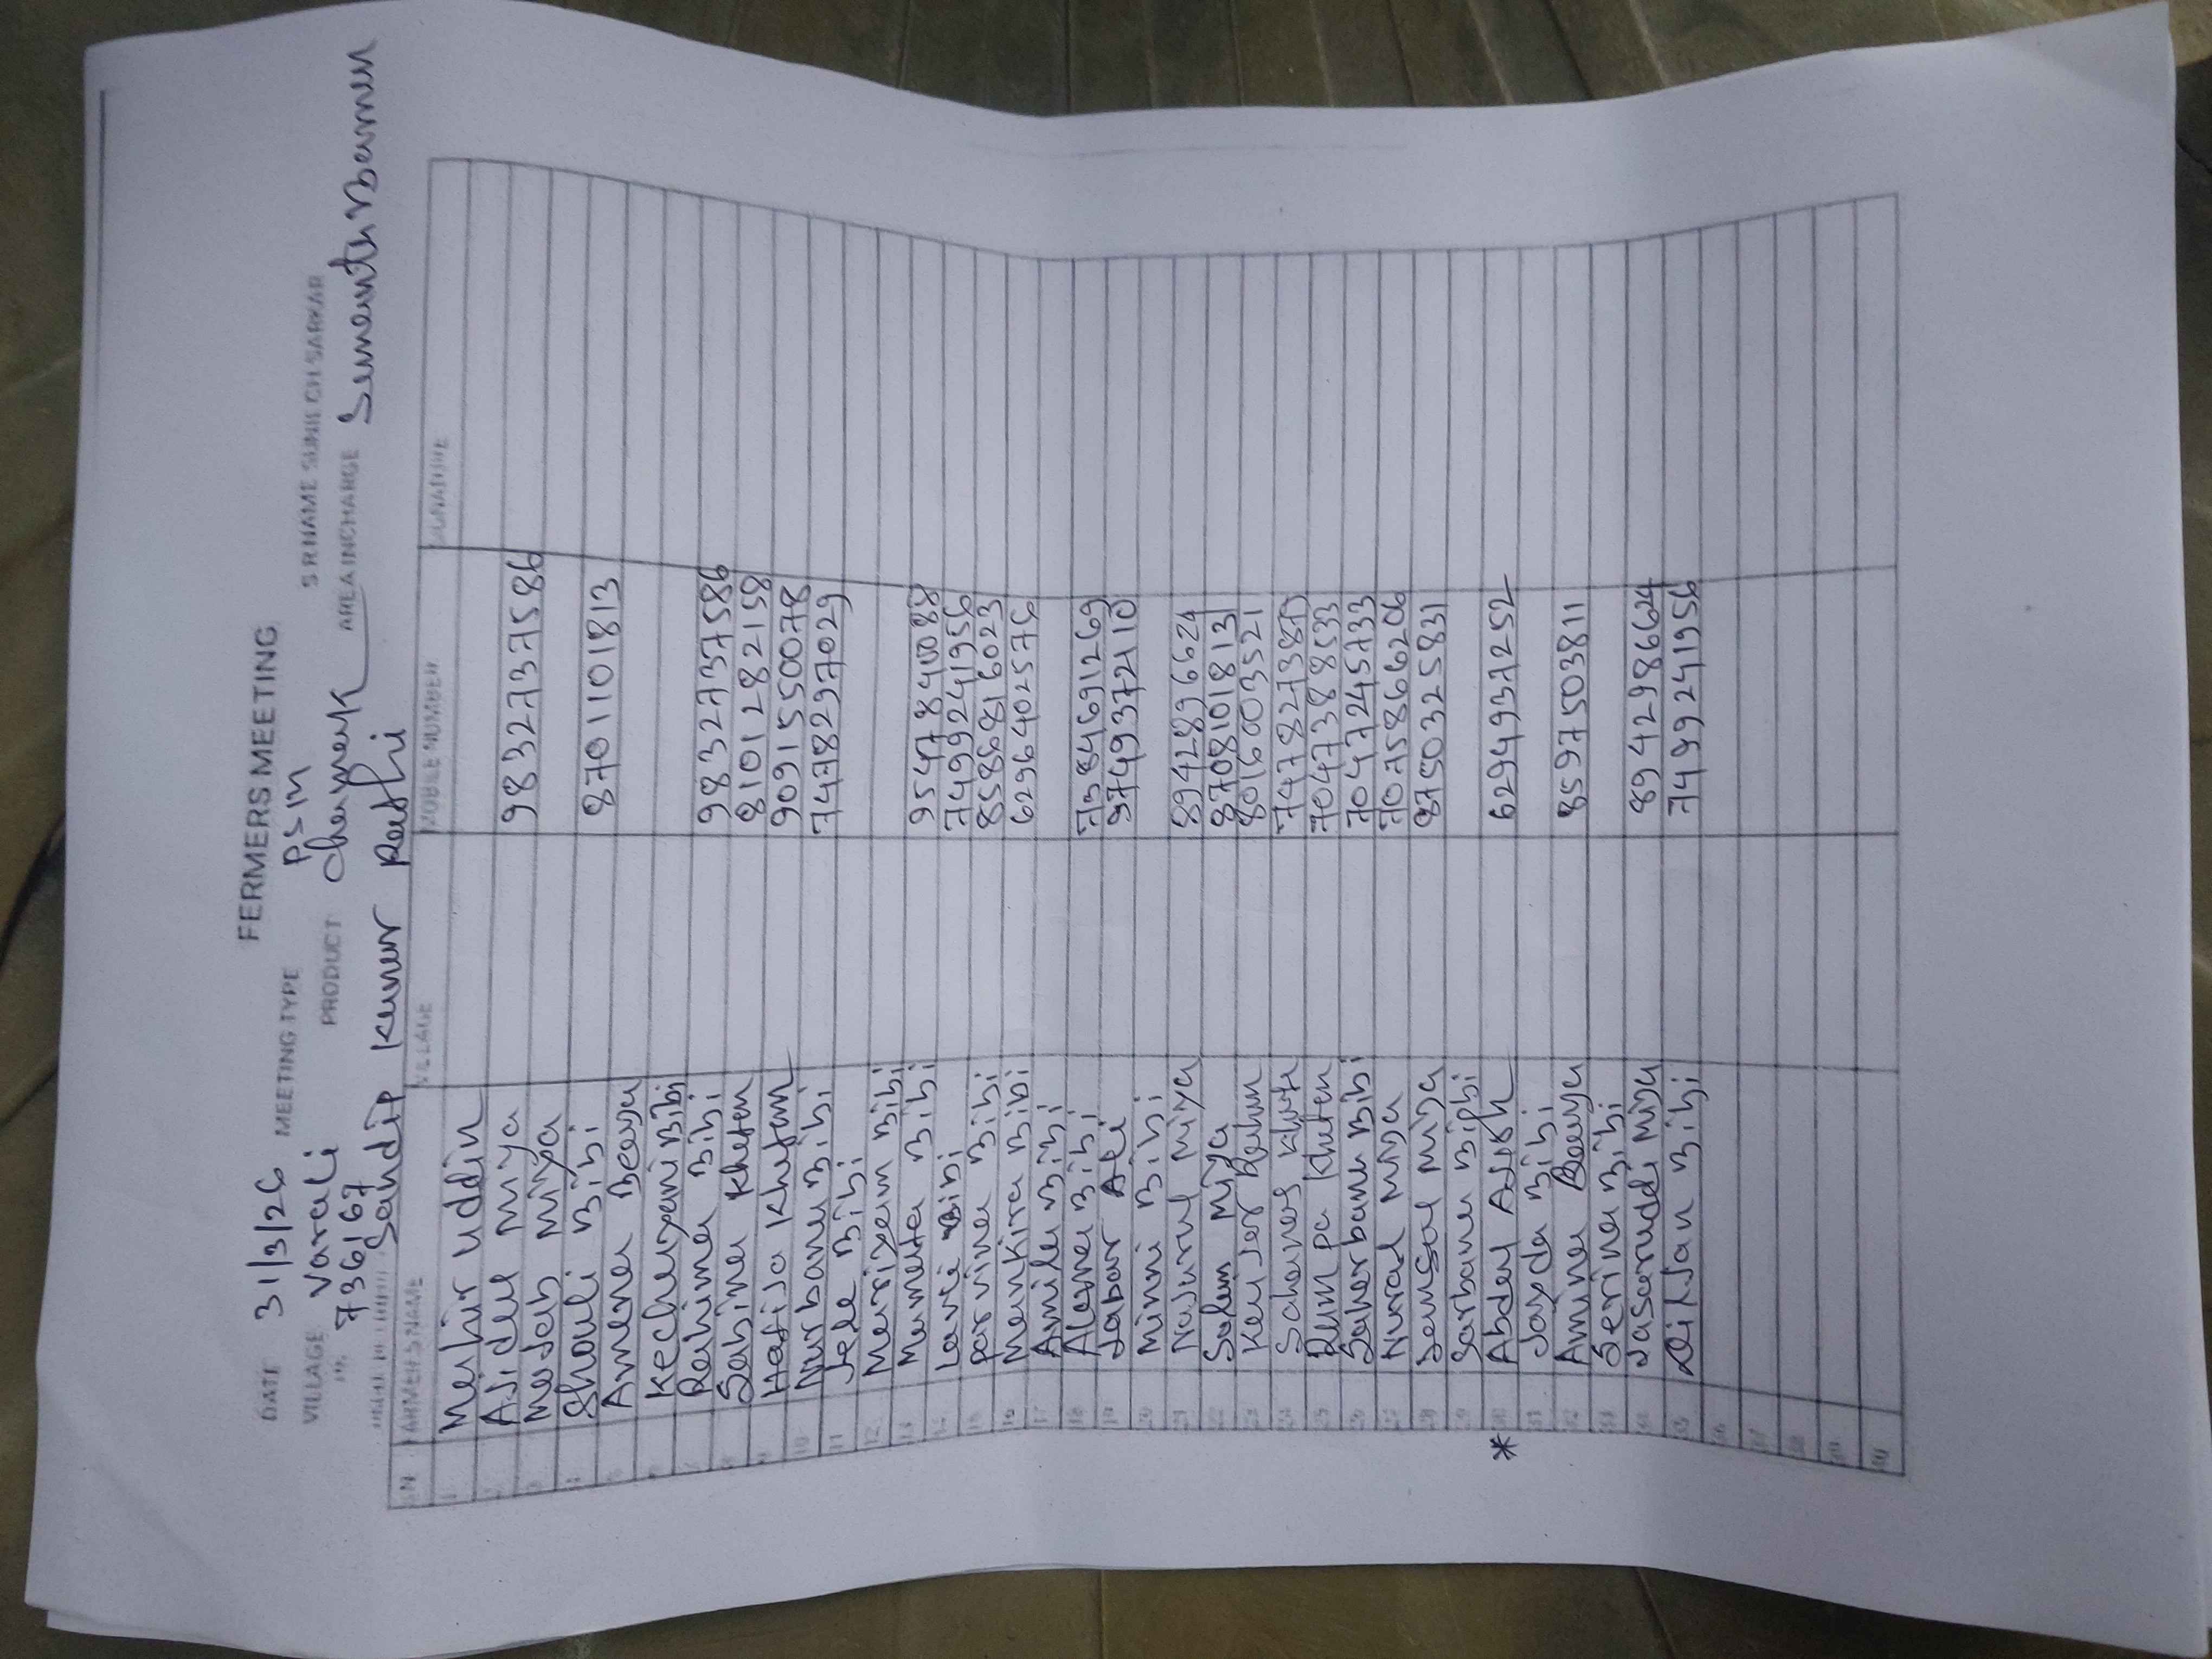 FERMERS MEETING
DATE 31/3/26 MEETING TYPE PSM SR NAME SUNIL CH SARKAR
VILLAGE Varali PRODUCT Chamerk AREA INCHARGE Sumanta Barman
736167
Sandip Kumar Rathi
SN FARMERS NAME VILLAGE MOBILE NUMBER SIGNATURE
1 Mahir Uddin
2 Ajidul Miya 9832737586
3 Majab Miya
4 Shouli Bibi 8701101813
5 Amena Beoya
6 Kechuyani Bibi
7 Rahima Bibi 9832737586
8 Sabina Khatun 8101282158
9 Hafija Khatun 9091550078
10 Nurbanu Bibi 7478297029
11 Jele Bibi
12 Mariyam Bibi
13 Mameta Bibi 9547840088
14 Lavli Bibi 7499241956
15 Parvina Bibi 8586816023
16 Mankira Bibi 6296402576
17 Amila Bibi
18 Alema Bibi 7384691269
19 Jabar Ali 9749372110
20 Minni Bibi
21 Najurul Miya 8942896624
22 Salem Miya 8708101813
23 Kausar Rahim 8016003521
24 Sahanaj Khatu
25 Rumpa Khatun 7047388533
26 Saharbanu Bibi 7047245733
27 Nural Miya 7075866206
28 Samsal Miya 8750325831
29 Sarbanu Bibi
* 30 Abdul 6294937252
31 Jayda Bibi
32 Amina Beoya 8597503811
33 Serina Bibi
34 Jasaruddi Miya 8942986624
35 Diljan Bibi 7499241956
36
37
38
39
40